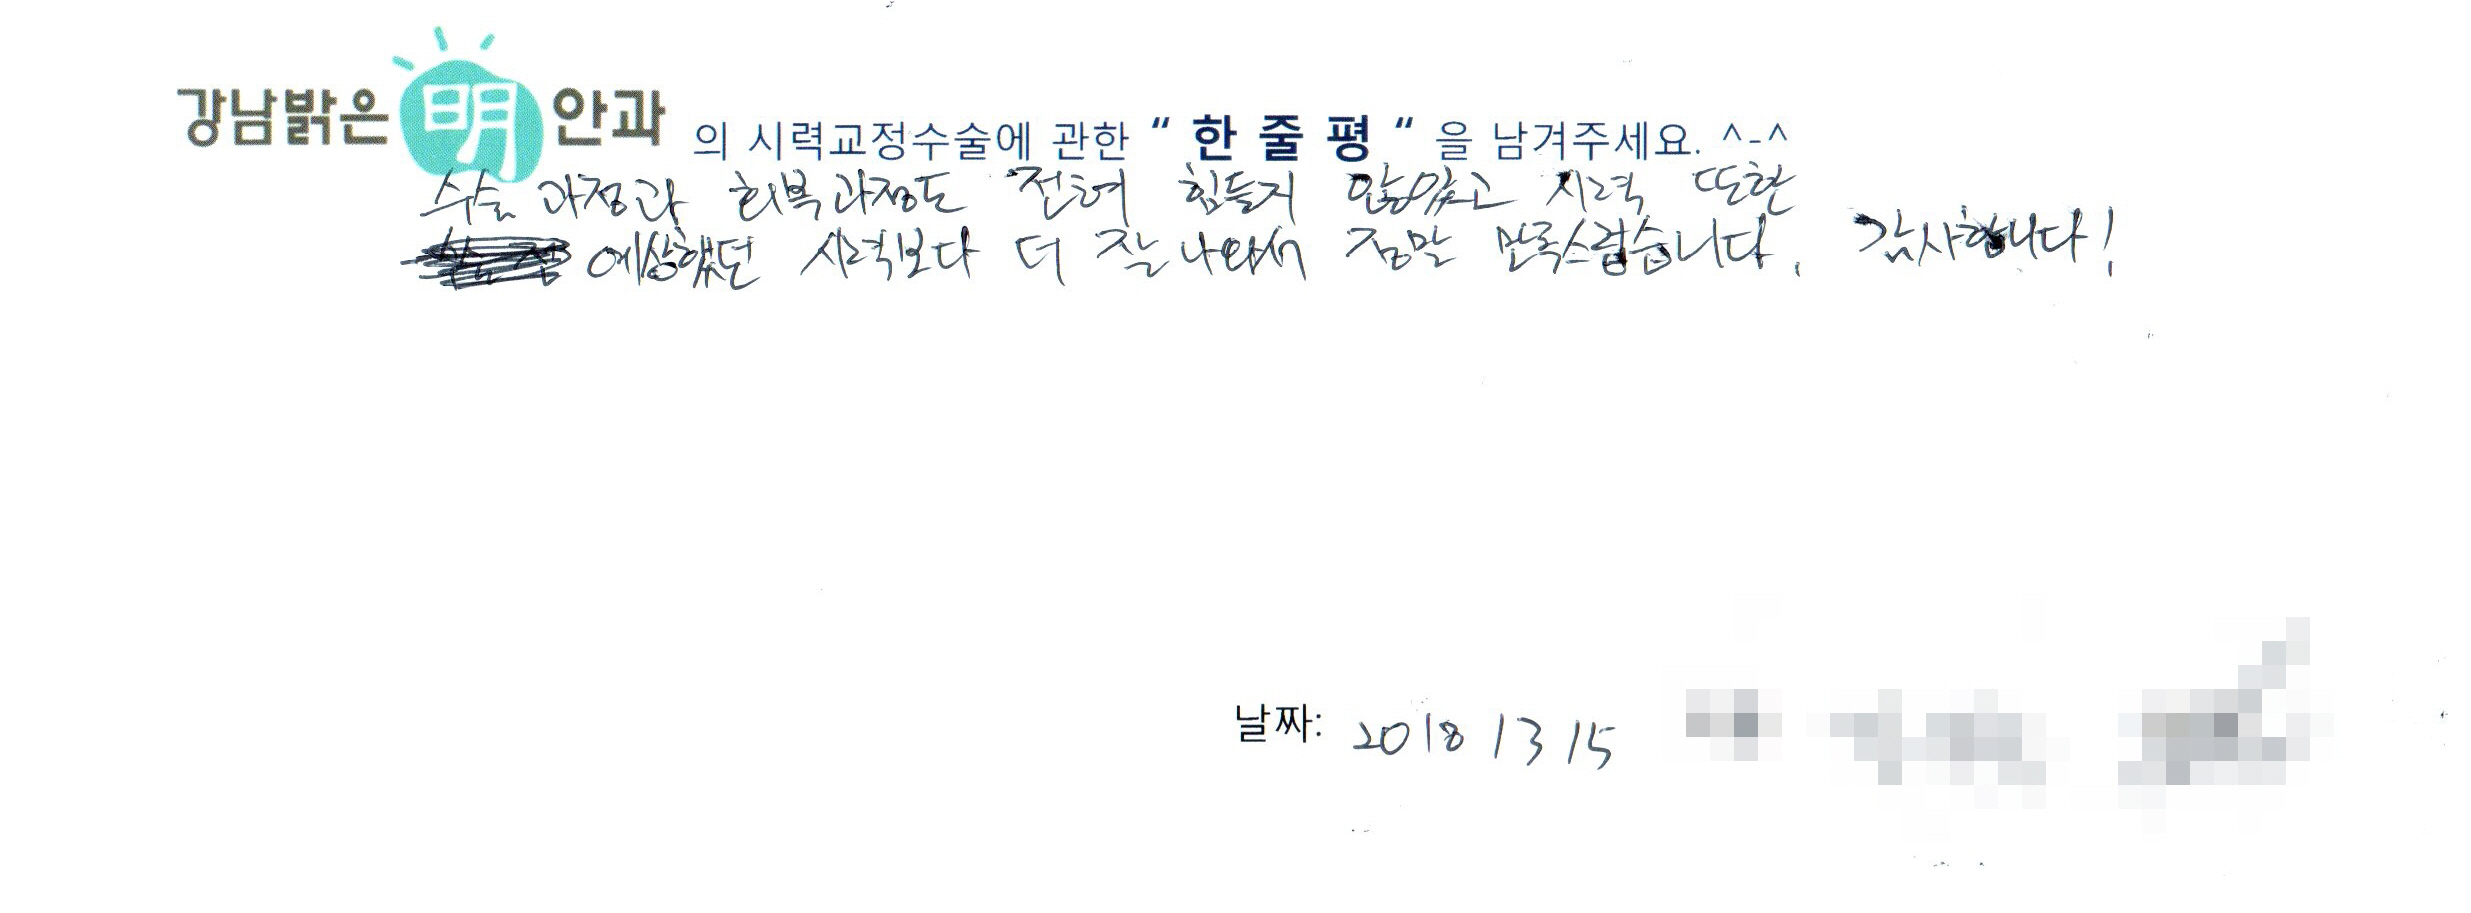 강남밝은 明 안과 의 시력교정수술에 관한 “ 한 줄 평 “ 을 남겨주세요. ^-^
수술 과정과 회복과정도 전혀 힘들지 않았고 시력 또한
예상했던 시력보다 더 잘 나와서 정말 만족스럽습니다. 감사합니다!
날짜: 2018 / 3 / 5